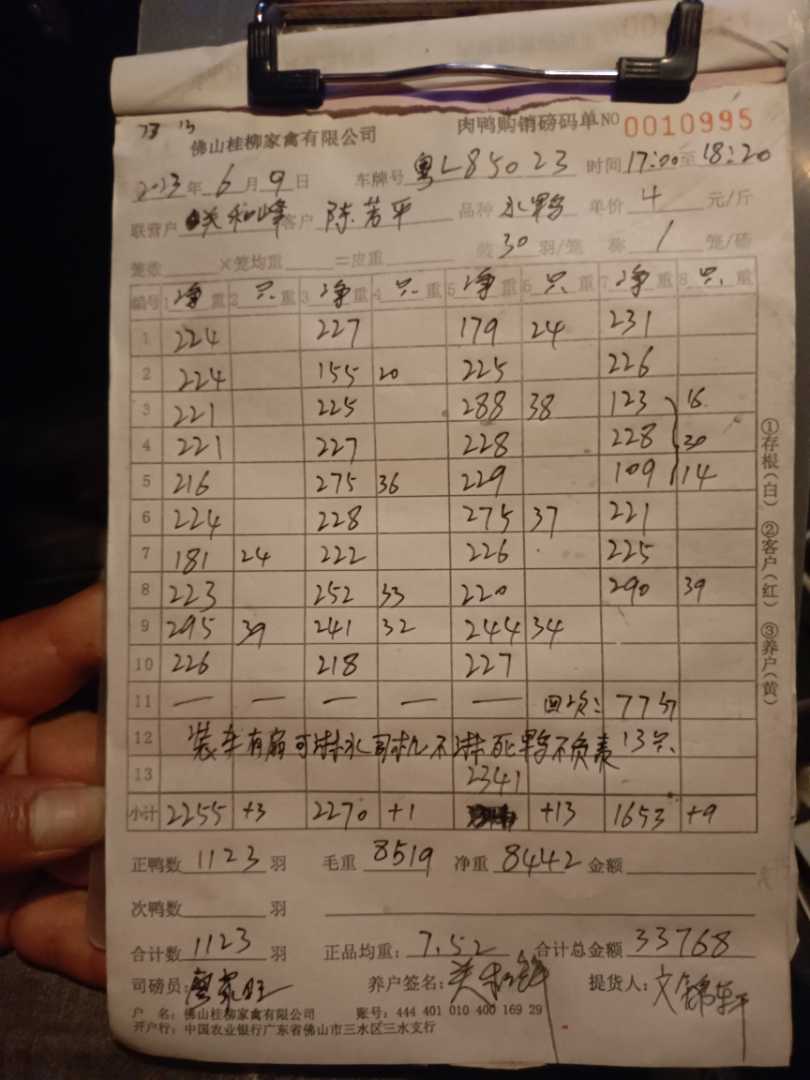 73 13
佛山桂柳家禽有限公司 肉鸭购销磅码单 NO 0010995
2023年 6月 9日 车牌号 粤L85023 时间 17:00至18:20
联营户 和峰 客户 陈芳平 品种 水鸭 单价 4 元/斤
笼数 ×笼均重 =皮重 装30羽/笼 称 1 笼/磅
编号 1净重 2只重 3净重 4只重 5净重 6只重 7净重 8只重
1 224 227 179 24 231
2 224 155 20 225 226
3 221 225 288 38 123 16
4 221 227 228 228 30
5 216 275 36 229 109 14
6 224 228 275 37 221
7 181 24 222 226 225
8 223 252 33 220 290 39
9 295 39 241 32 244 34
10 226 218 227
11 — — — — — 回次: 77斤
12 装车有病可淋水司机不淋死鸭不负责 13只
13 2341
小计 2255 +3 2270 +1 +13 1653 +9
正鸭数 1123 羽 毛重 8519 净重 8442 金额
次鸭数 羽
合计数 1123 羽 正品均重: 7.52 合计总金额 33768
司磅员: 养户签名: 提货人: 文锦轩
户 名: 佛山桂柳家禽有限公司 账号: 444 401 010 400 169 29
开户行: 中国农业银行广东省佛山市三水区三水支行
①存根(白) ②客户(红) ③养户(黄)